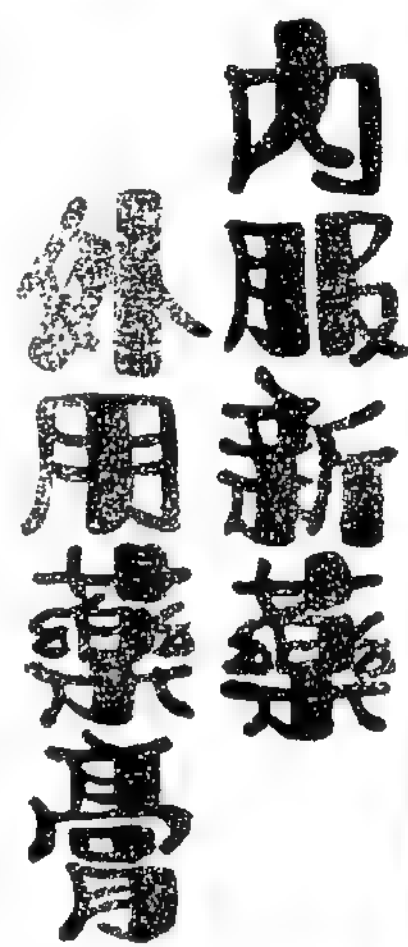 內服新藥
外用藥膏